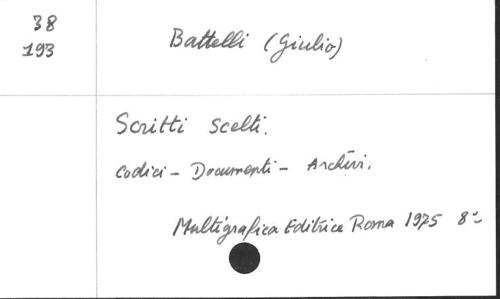 38
193
Battelli (Giulio)
Scritti scelti.
Codici - Documenti - Archivi.
Multigrafica Editrice Roma 1975 8°